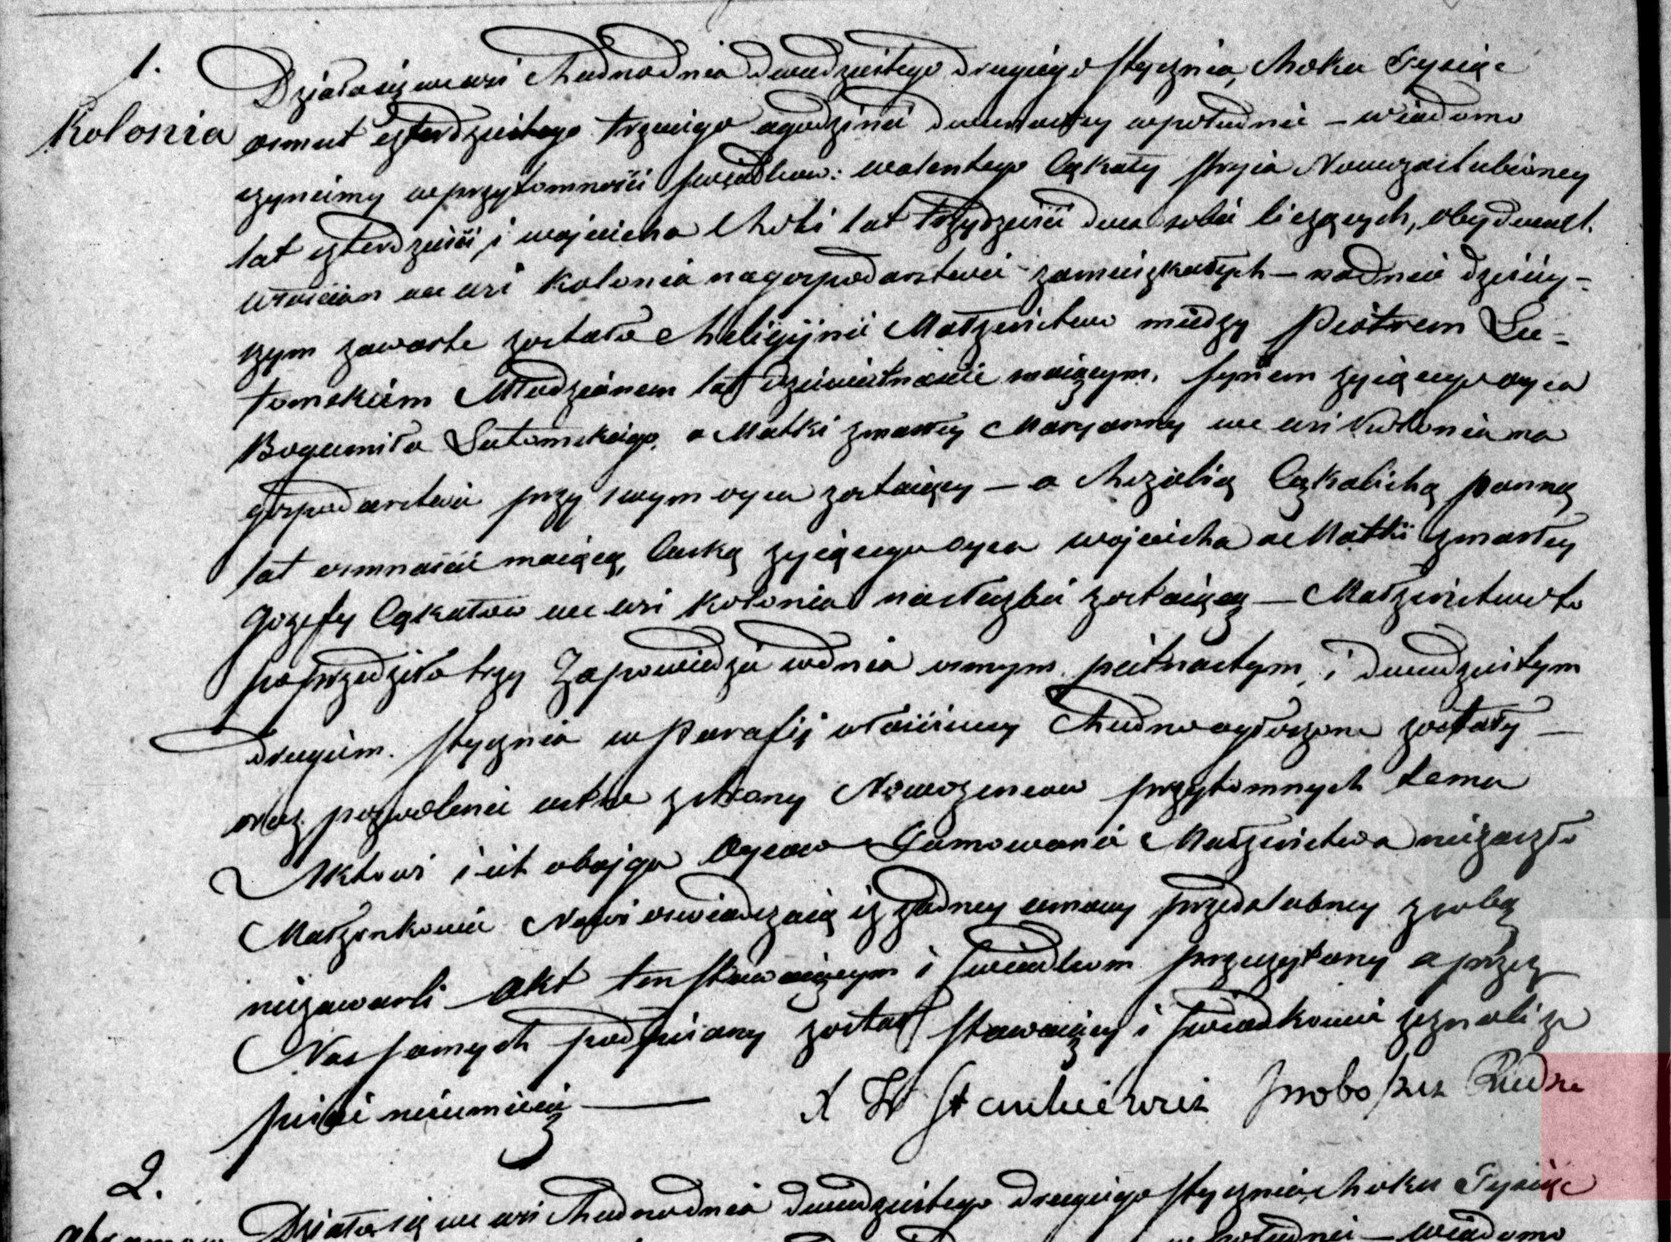 1.
Kolonia
Działo się we wsi Rudno dnia dwudziestego drugiego Stycznia, Roku Tysiąc
osmset czterdziestego trzeciego o godzinie dwunastey w południe – wiadomo
czyniemy w przytomności świadków: Walentego Cąkały stryia Nowozaslubioney
lat czterdzieści, i Woyciecha Roki lat trzydzieści dwa sobie liczących, obydwuch
włoscian we wsi Kolonia na gospodarstwie zamieszkałych – na dniu dzisiey-
szym zawarte zostało Religijne Małzenstwo między Piotrem Lu-
tomskim Młodzianem lat dziewietnascie maiącym, synem zyiącego oyca
Bogumiła Lutomskiego, a Matki zmarłey Maryanny we wsi Kolonia na
gospodarstwie przy swym oycu zostaiący – a Rozalią Cąkalichą panną
lat osmnascie maiącą, Curką zyiącego oyca Woyciecha a Matki zmarłey
Jozefy Cąkałow we wsi Kolonia na służbie zostaiącą – Małzenstwo to
poprzedziło trzy Zapowiedzie w dniu osmym, pietnastym, i dwudziestym
drugim Stycznia w Parafij własciwey Rudno ogłoszone zostały –
oraz pozwolenie ustne z strony Nowozencow przytomnych temu
Aktowi i ich oboyga Oycow Tamowanie Małzenstwa nie zaszło
Małzonkowie Nowi oswiadczaią iz zadney umowy przedslubney z sobą
nie zawarli Akt ten stawaiącym i swiadkom przeczytany a przez
Nas samych podpisany został stawaiący i swiadkowie zeznali ze
pisać nieumieią
X W Stankiewicz Proboszcz Rudzie
2.
Działo się we wsi Rudno dnia dwudziestego drugiego Stycznia, Roku Tysiąc
południe – wiadomo